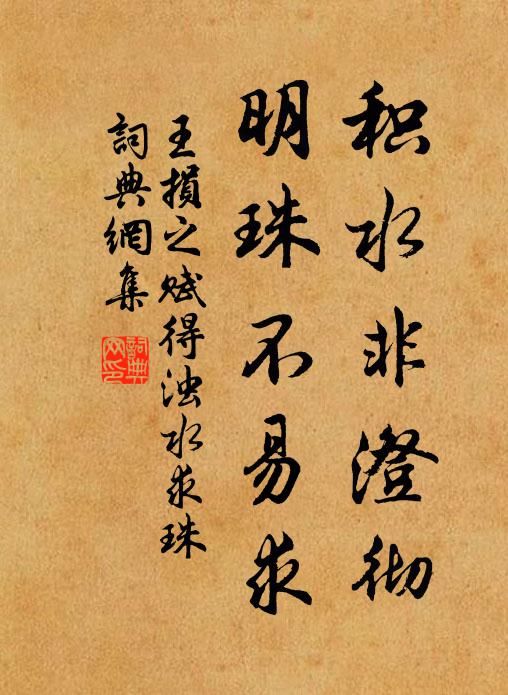 积水非澄彻
明珠不易求
王損之赋得浊水求珠
詞典網集
詞典网印